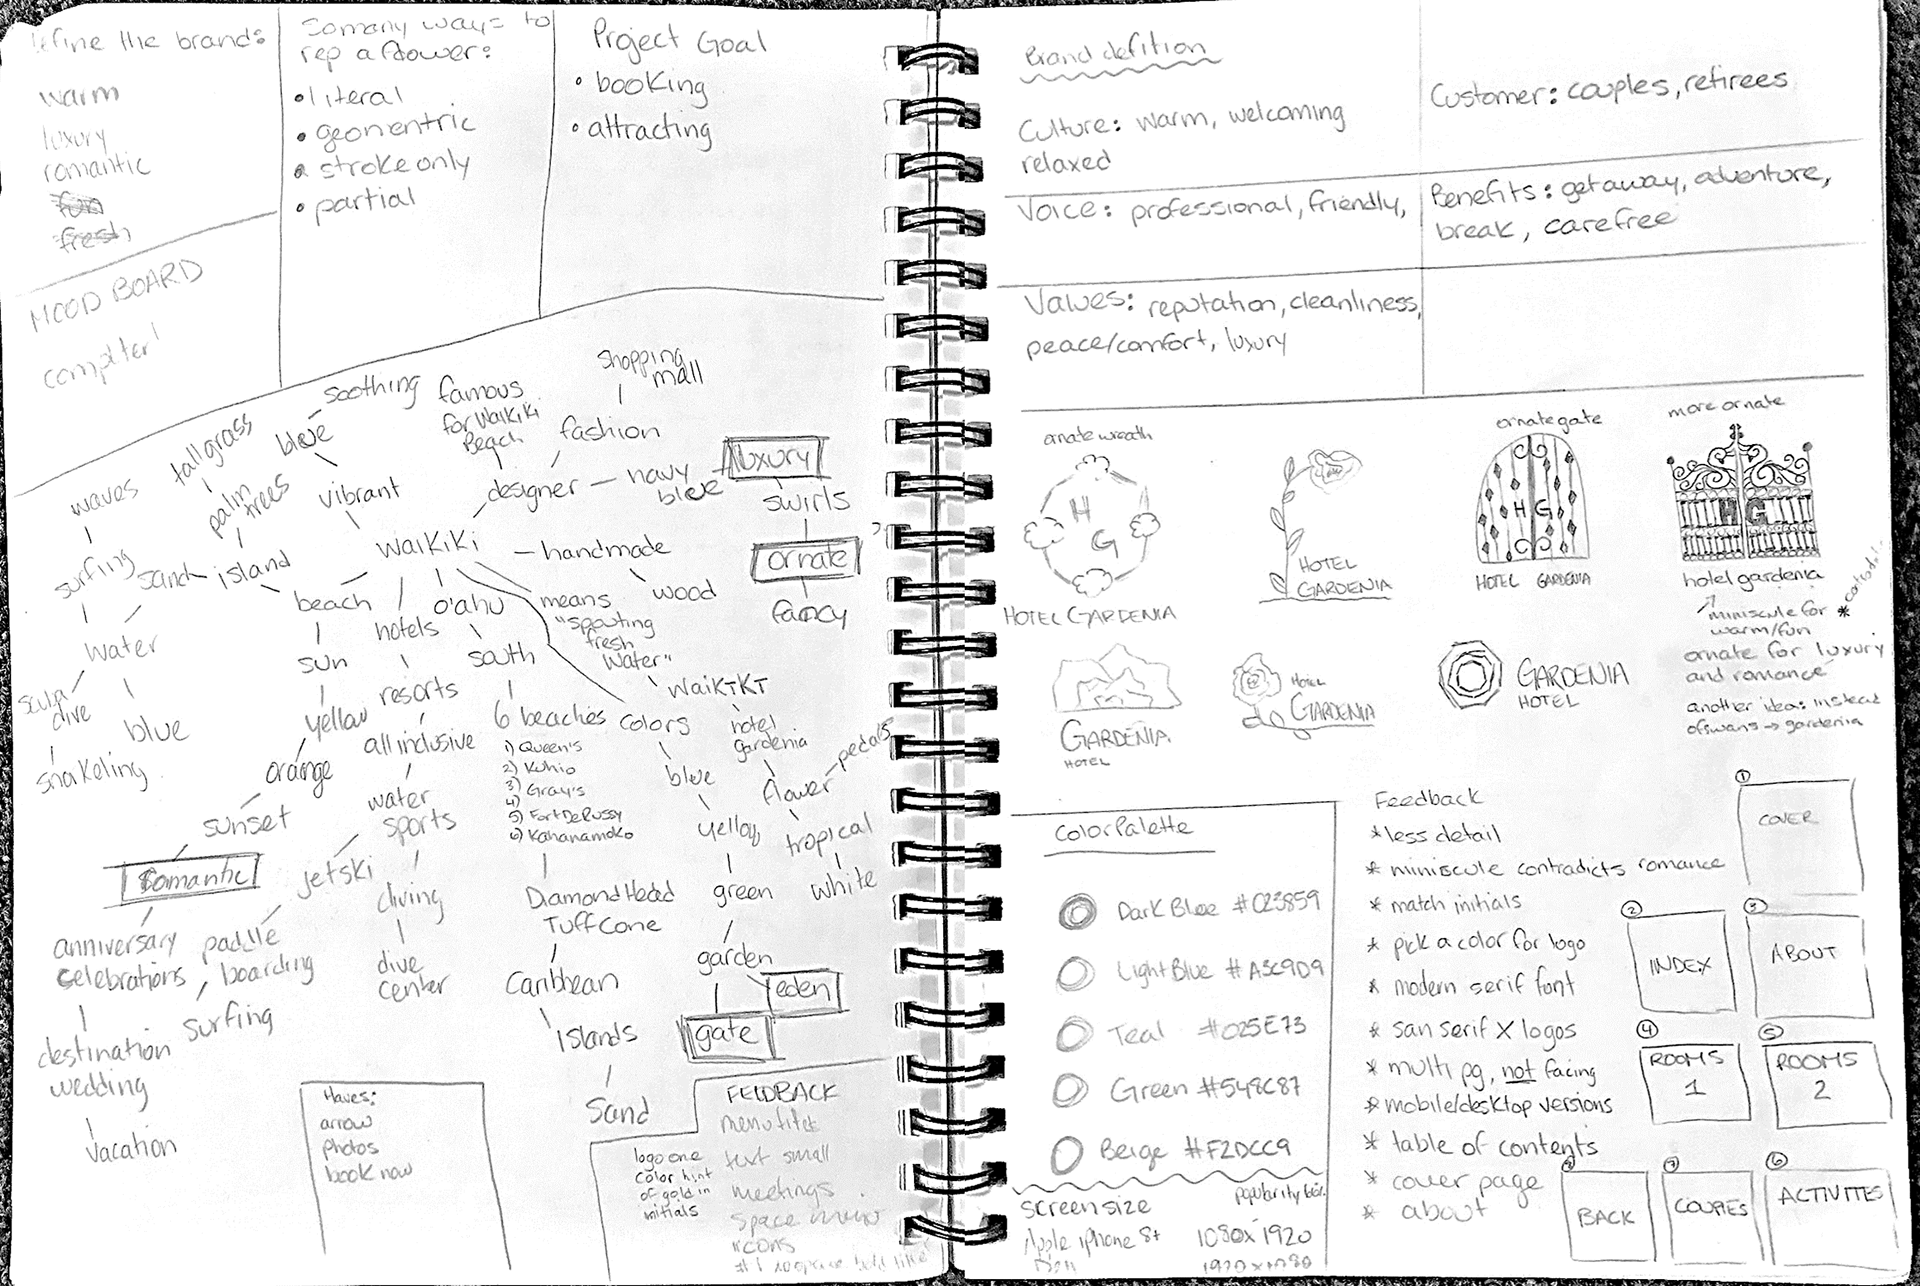 Define the brand:
warm
luxury
romantic
fun
fresh
MOOD BOARD
So many ways to
rep a flower:
• literal
• geomentric
• stroke only
• partial
Project Goal
• booking
• attracting
soothing
famous
for Waikiki
Beach
shopping
mall
fashion
tall grass
blue
waves
palm
trees
vibrant
designer
navy
blue
luxury
swirls
ornate
fancy
surfing
sand
island
Waikiki
handmade
wood
beach
hotels
o'ahu
means
"spouting
fresh
water"
water
sun
south
scuba
dive
blue
snorkeling
yellow
orange
sunset
romantic
resorts
all inclusive
water
sports
jetski
diving
dive
center
6 beaches
1) Queen's
2) Kuhio
3) Gray's
4)
5) Fort DeRussy
6) Kahanamoko
colors
blue
yellow
green
garden
eden
gate
WaiKIKI
hotel
gardenia
flower
pedals
tropical
white
anniversary
celebrations
paddle
boarding
surfing
destination
wedding
vacation
Diamond Head
Tuff Cone
Caribbean
Islands
Sand
Haves:
arrow
photos
book now
logo one
color hint
of gold in
initials
FEEDBACK
text small
meetings
space
icons
Brand defition
Culture: warm, welcoming
relaxed
Customer: couples, retirees
Voice: professional, friendly,
Benefits: getaway, adventure,
break, carefree
Values: reputation, cleanliness,
peace/comfort, luxury
ornate wreath
H
G
HOTEL GARDENIA
HOTEL
GARDENIA
ornate gate
H G
HOTEL GARDENIA
more ornate
H G
hotel gardenia
miniscule for
warm/fun
ornate for luxury
and romance
another idea: instead
of swans → gardenia
GARDENIA
HOTEL
HOTEL
GARDENIA
GARDENIA
HOTEL
Color Palette
Dark Blue #023859
Light Blue #A3C9D9
Teal #025E73
Green #548C87
Beige #F2DCC9
screen size
Apple iphone 8+ 1080x1920
1920x1080
Feedback
* less detail
* miniscule contradicts romance
* match initials
* pick a color for logo
* modern serif font
* san serif X logos
* multi pg, not facing
* mobile/desktop versions
* table of contents
* cover page
* about
1
COVER
2
INDEX
3
ABOUT
4
ROOMS
1
5
ROOMS
2
6
ACTIVITES
7
COUPLES
8
BACK